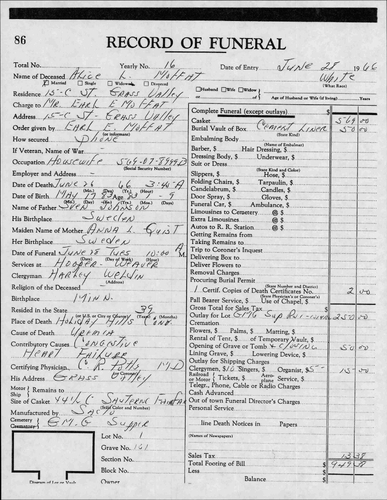 86
RECORD OF FUNERAL
Total No. Yearly No. 16 Date of Entry June 28 1966
Name of Deceased Alice L. Moffat White
Married Single Widowed Divorced (What Race)
Residence 15-C St. Grass Valley Husband Wife Widow of Age of Husband or Wife (if living) Years
Charge to Mr. Earl E Moffat
Address 15-C St. Grass Valley
Order given by Earl E. Moffat
How secured Phone
If Veteran, Name of War
Occupation Housewife
(Social Security Number)
Employer and Address
Date of Death June 26 66 3:45 A M
Date of Birth May 17
Name of Father Johnson
His Birthplace Sweden
Maiden Name of Mother Anna L Quist
Her Birthplace Sweden
Date of Funeral June 28 Tues 10:00 A M
Services at Hooper-Weaver
Clergyman Harley Weldin
Religion of the Deceased
Birthplace Minn.
Resided in the State 39
Place of Death Holiday Hills
Cause of Death Uremia
Contributory Causes Congestive
Heart Failure
Certifying Physician C. R. Potts MD
His Address Grass Valley
Motor Remains to
Ship
Size of Casket
Manufactured by
Cemetery
Crematory
Lot No. 1
Grave No. 161
Section No.
Block No.
Owner
Diagram of Lot or Vault
Complete Funeral (except outlays) $
Casket 569 00
Burial Vault of Box Cement Liner 50 00
(State Kind)
Embalming Body
(Name of Embalmer)
Barber, $ Hair Dressing, $
Dressing Body, $ Underwear, $
Suit or Dress
(State Kind and Color)
Slippers, $ Hose, $
Folding Chairs, $ Tarpaulin, $
Candelabrum, $ Candles, $
Door Spray, $ Gloves, $
Funeral Car, $ Ambulance, $
Limousines to Cemetery @ $
Extra Limousines @ $
Autos to R. R. Station @ $
Getting Remains from
Taking Remains to
Trip to Coroner's Inquest
Delivering Box to
Deliver Flowers to
Removal Charges
Procuring Burial Permit
(State Number and District)
1 Certif. Copies of Death Certificates No. 2 00
(State Physician's or Coroner's)
Pall Bearer Service, $ Use of Chapel, $
Gross Total for Sales Tax $
Outlay for Lot 250 00
Cremation
Flowers, $ Palms, $ Matting, $
Rental of Tens, $ of Temporary Vault, $
Opening of Grave or Tomb + Closing 50 00
Lining Grave, $ Lowering Device, $
Outlay for Shipping Charges
Clergymen, $10 Singers, $ Organist, $5 15 00
Railroad or Motor Tickets, $ Aeroplane Service, $
Telegr., Phone, Cable or Radio Charges
Cash Advanced
Out of town Funeral Director's Charges
Personal Service
line Death Notices in Papers
(Names of Newspapers)
Sales Tax 13 38
Total Footing of Bill $ 949 38
Less $
Balance $